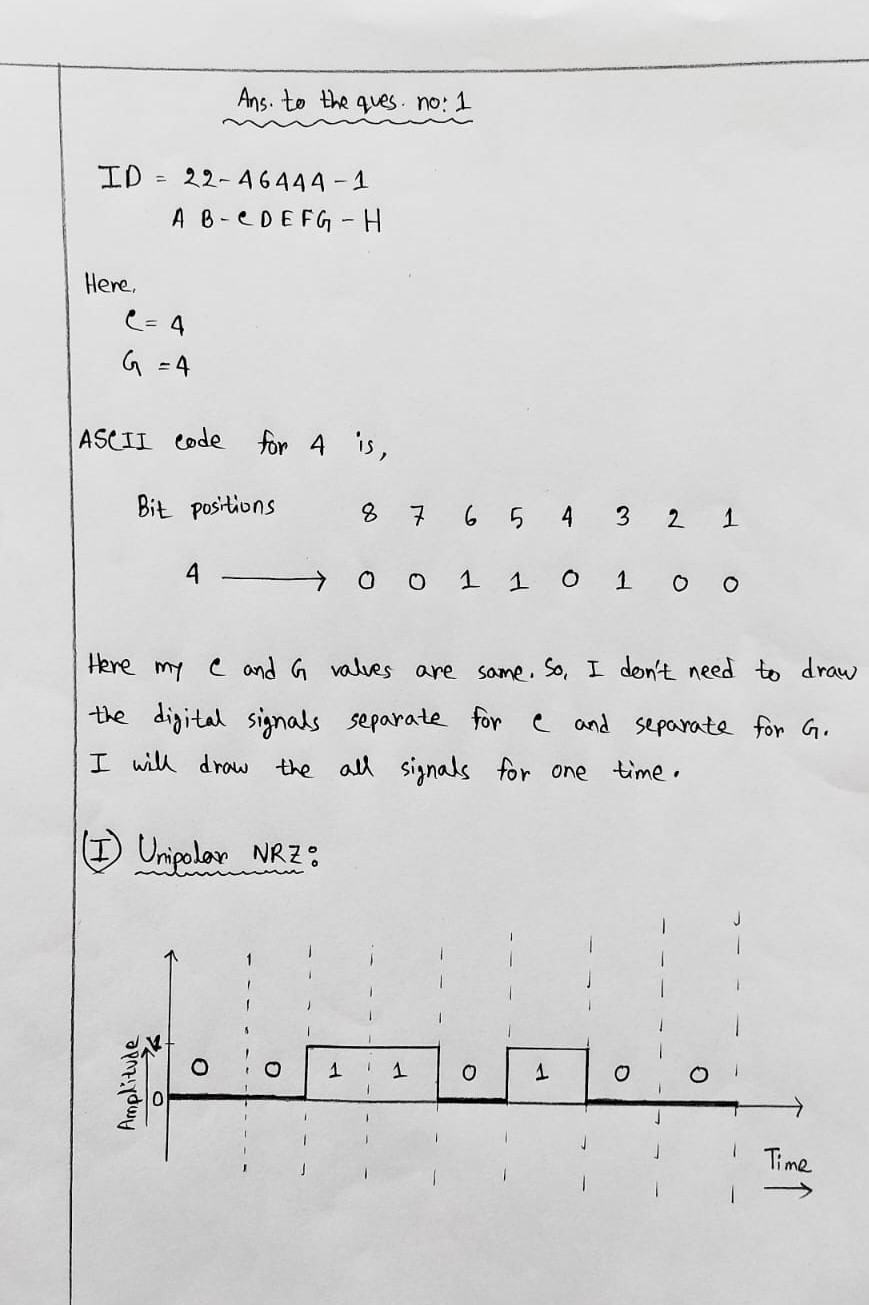 Ans. to the ques. no: 1
ID = 22-46444-1
A B - C D E F G - H
Here,
C = 4
G = 4
ASCII code for 4 is,
Bit positions 8 7 6 5 4 3 2 1
4 → 0 0 1 1 0 1 0 0
Here my C and G values are same. So, I don't need to draw
the digital signals separate for C and separate for G.
I will draw the all signals for one time.
(I) Unipolar NRZ:
Amplitude
0 0 1 1 0 1 0 0
0
Time